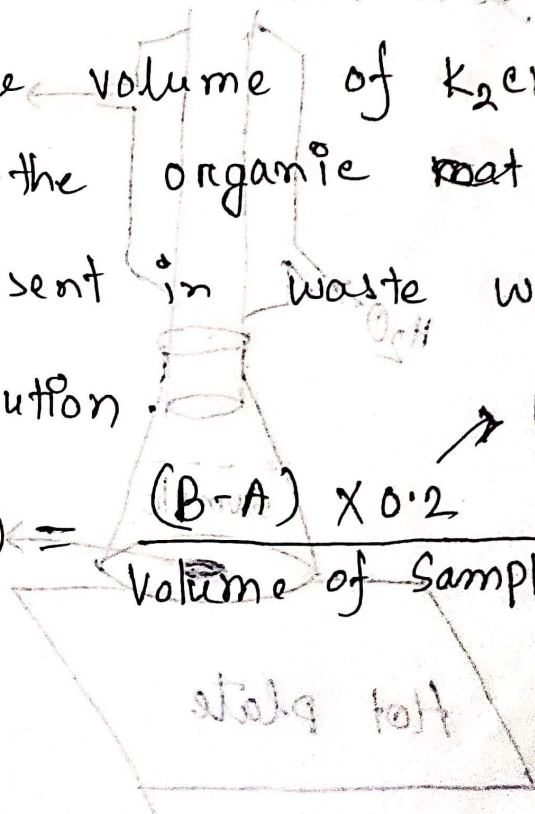 e volume of K₂cr
the organic mat
sent in waste w
H₂O
ution.
) = (B-A) × 0.2
Volume of Sampl
Hot plate